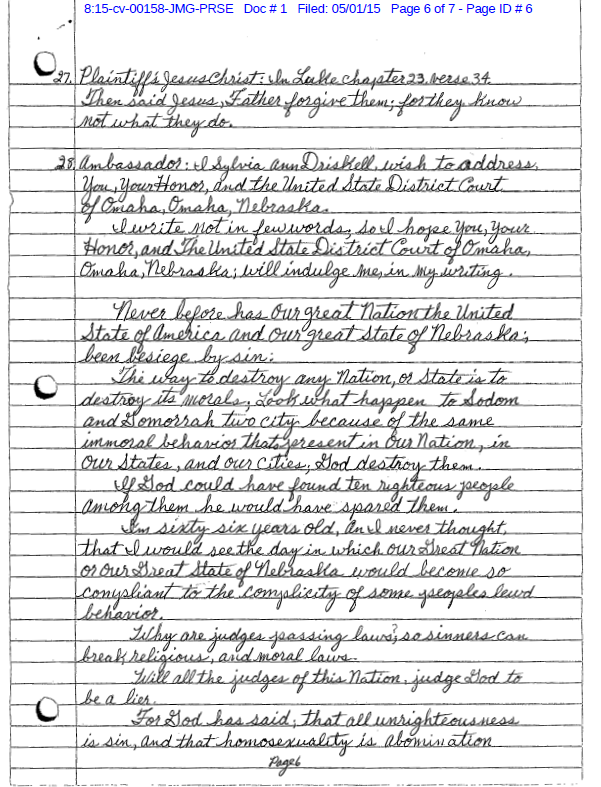 8:15-cv-00158-JMG-PRSE Doc # 1 Filed: 05/01/15 Page 6 of 7 - Page ID # 6
27. Plaintiff's Jesus Christ: In Luke chapter 23. verse 34
Then said Jesus, Father forgive them; for they know
not what they do.
28. Ambassador: I Sylvia Ann Driskell, wish to address,
You, Your Honor, and the United State District Court
of Omaha, Omaha, Nebraska.
I write not in few words, so I hope You, Your
Honor, and The United State District Court of Omaha,
Omaha, Nebraska; will indulge me, in my writing.
Never before has Our great Nation the United
State of America and Our great State of Nebraska;
been besiege by sin:
The way to destroy any Nation, or State is to
destroy its morals; Look what happen to Sodom
and Gomorrah two city because of the same
immoral behavior thats present in Our Nation, in
Our States, and our Cities; God destroy them.
If God could have found ten righteous people
among them he would have spared them.
I'm sixty six years old, an I never thought,
that I would see the day in which our Great Nation
or Our Great State of Nebraska would become so
compliant to the complicity of some peoples lewd
behavior.
Why are judges passing laws; so sinners can
break religious, and moral laws.
Will all the judges of this Nation, judge God to
be a lier.
For God has said; that all unrighteousness
is sin, and that homosexuality is abomination
Page 6